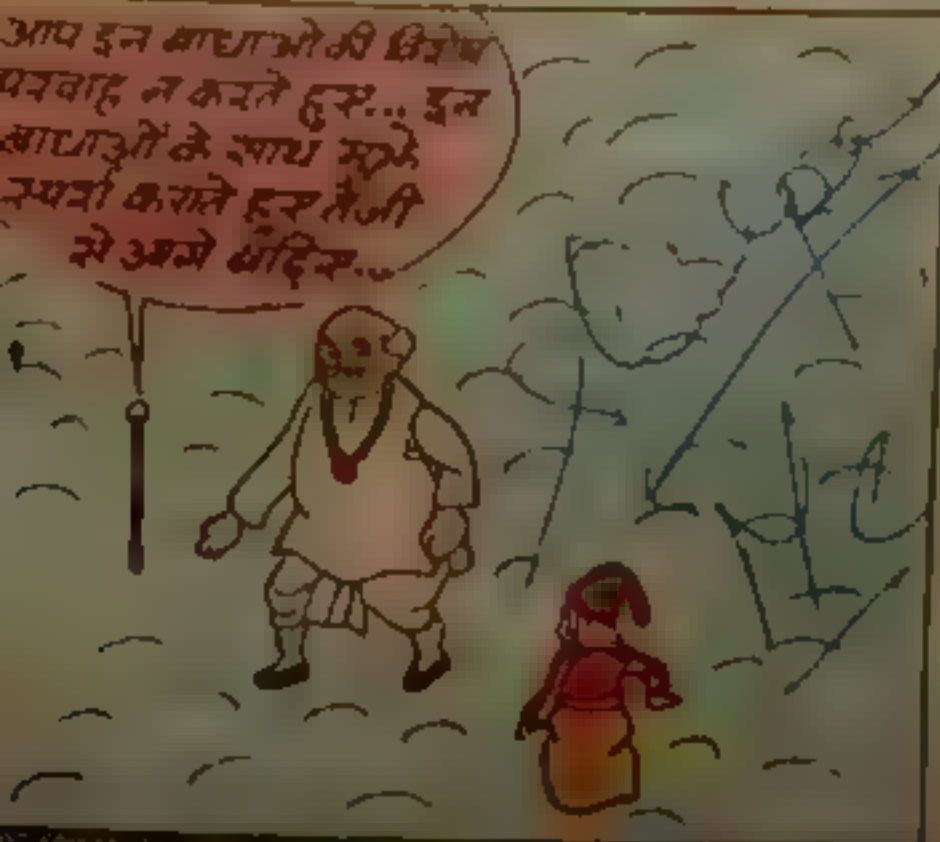 आप इन बाधाओं की विशेष
परवाह न करते हुए... इन
बाधाओं के साथ मुझे
स्पर्श कराते हुए तेजी
से आगे बढ़िए...